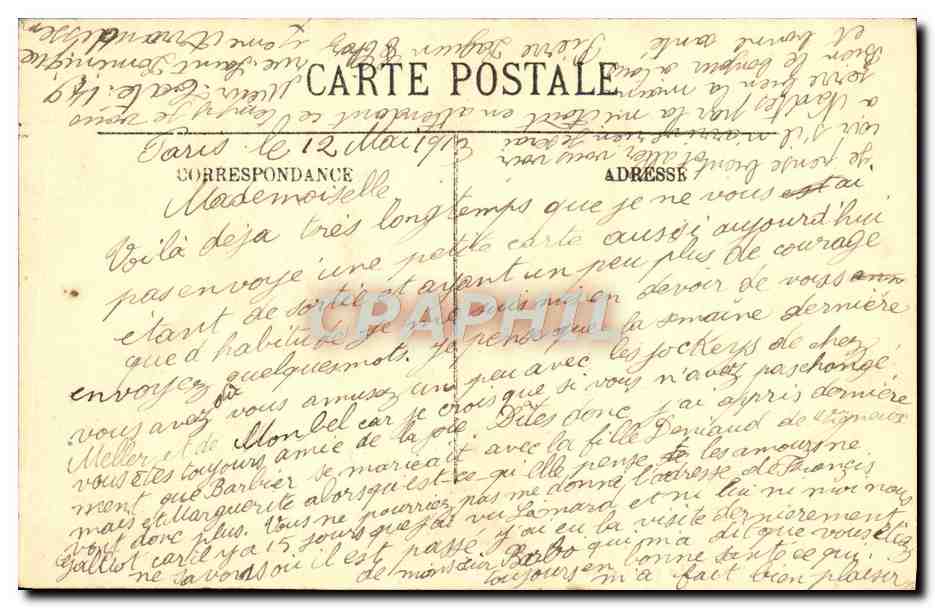 CARTE POSTALE
CORRESPONDANCE
ADRESSE
Paris le 12 Mai 19
Mademoiselle
Voilà déja très longtemps que je ne vous ai
pas envoyé une petite carte aussi aujourd'hui
étant de sortie et ayant un peu plus de courage
que d'habitude je me suis mi en devoir de vous
envoyez quelques mots. Je pense que la semaine dernière
vous avez dû vous amusez un peu avec les jockeys de chez
Meller et de Monbel car je crois que si vous n'avez pas changé
vous êtes toujours amie de la joie. Dîtes donc j'ai appris dernière
ment que Barbier se mariait avec la fille Deniaud de
mais et Marguerite alors qu'est-ce qu'elle pense les amours ne
vont donc plus. Vous ne pourriez pas me donné l'adresse de François
Galliot car il y a 15 jours que j'ai vu Léonard et ni lui ni moi nous
ne savons où il est passé j'ai eu la visite dernierement
de monsieur Barbo qui m'a dit que vous étiez
toujours en bonne santé ce qui
m'a fait bien plaisir
je pense bientôt aller vous voir
car s'il n'arrive rien je serai
à Nantes par la mi Août en attendant ce temps je vous
serre bien la main
Bien le bonjour à tous
et bonne santé
Pierre
rue Saint Dominique
CPAPHIL